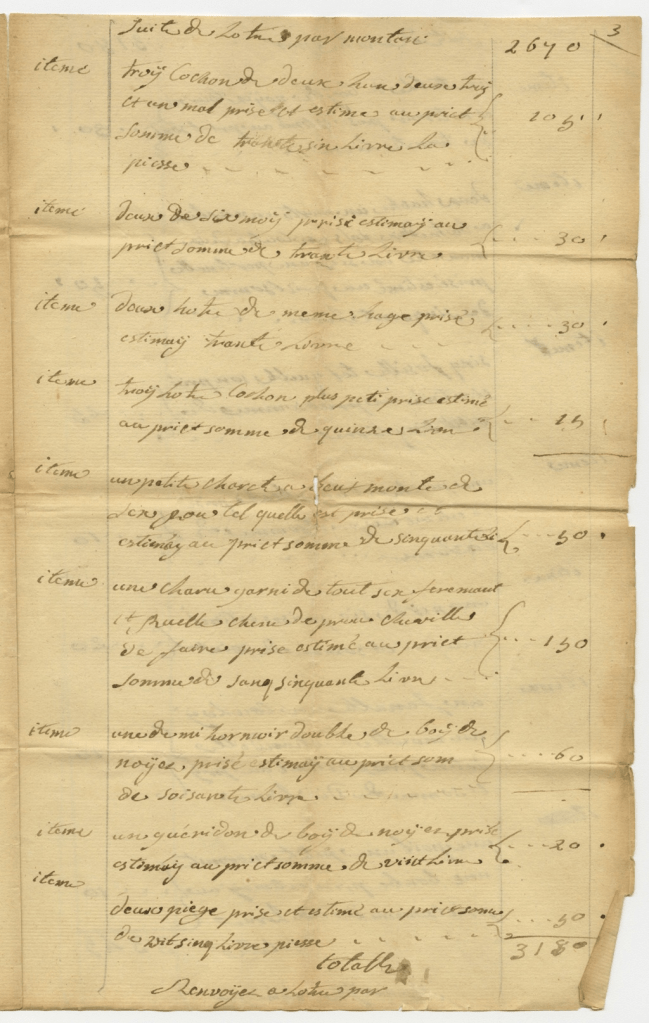 3
Suite de lotre par montan 2670
iteme troÿ Cochon de deux han deux troÿ
et un mal prise et estime au prict 105
somme de trante sin Livre La
piesse
iteme deux de six moÿ prise estimaÿ au
prict somme de trante Livre 30
iteme deux hotre de meme hage prise 30
estimaÿ trante Livre
iteme troÿ hotre Cochon plus peti prise estimé
au prict somme de quinse Livre 15
iteme un petite charet a beuf monte de
tel quelle est prise et
estimaÿ au prict somme de sinquante Li 50
iteme une charu garni de tout sex feremant
et Ruelle chene de cheville
de faire prise estimé au prict 150
somme de sanq sinquante Livre
iteme une de mi hormoir double de boÿ de
noÿer prise estimaÿ au prict som 60
de soisante Livre
iteme un guéridon de boÿ de noÿer prise
estimaÿ au prict somme de vint Livre 20
iteme deux piege prise et estimé au prict somme 50
de vit sinq Livre piesse 3180
totalle
Renvoÿez a lotre par